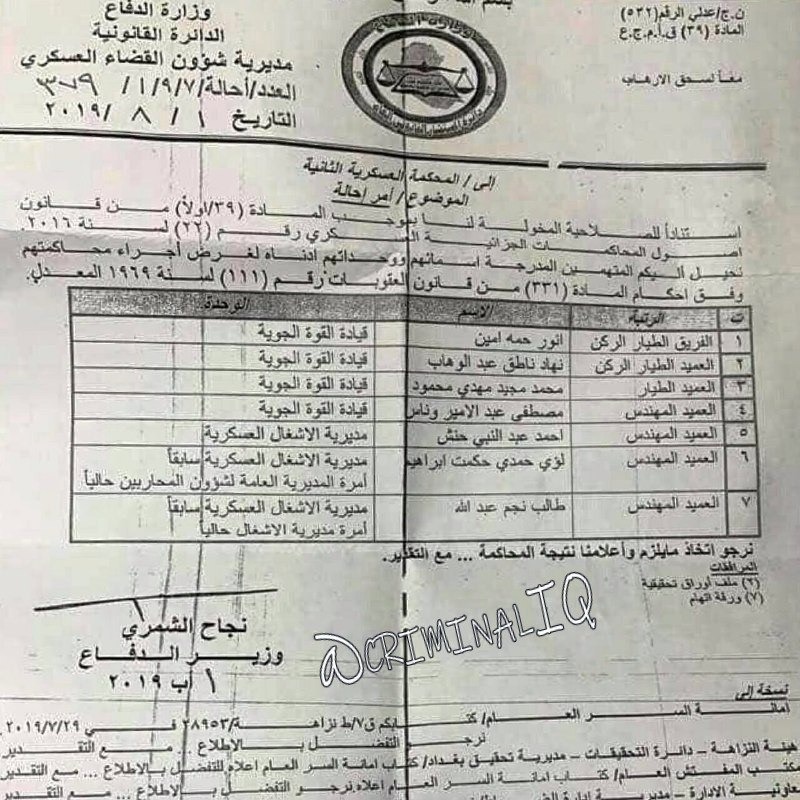 ن.ج/عدلي الرقم(٥٣٢)
المادة (٣٩) ق.أ.م.ج.ع
معاً لسحق الارهاب
وزارة الدفاع
الدائرة القانونية
مديرية شؤون القضاء العسكري
العدد/أحالة/١/٩/٧/ ٣٧٩
التاريخ ١ / ٨ /٢٠١٩
إلى / المحكمة العسكرية الثانية
الموضوع / أمر إحالة
استناداً للصلاحية المخولة لنا بموجب المادة (٣٩/اولاً) من قانون
اصول المحاكمات الجزائية العسكري رقم (٢٢) لسنة ٢٠١٦.
نحيل اليكم المتهمين المدرجة اسمائهم ووحداتهم ادناه لغرض أجراء محاكمتهم
وفق احكام المادة (٣٣١) من قانون العقوبات رقم (١١١) لسنة ١٩٦٩ المعدل.
ت الرتبة الاسم الوحدة
١ الفريق الطيار الركن انور حمه امين قيادة القوة الجوية
٢ العميد الطيار الركن نهاد ناطق عبد الوهاب قيادة القوة الجوية
٣ العميد الطيار محمد مجيد مهدي محمود قيادة القوة الجوية
٤ العميد المهندس مصطفى عبد الامير وناس قيادة القوة الجوية
٥ العميد المهندس احمد عبد النبي حنش مديرية الاشغال العسكرية
٦ العميد المهندس لؤي حمدي حكمت ابراهيم مديرية الاشغال العسكرية سابقاً
أمرة المديرية العامة لشؤون المحاربين حالياً
٧ العميد المهندس طالب نجم عبد الله مديرية الاشغال العسكرية سابقاً
أمرة مديرية الاشغال حالياً
نرجو اتخاذ مايلزم وأعلامنا نتيجة المحاكمة ... مع التقدير.
المرافقات
(٢) ملف أوراق تحقيقية
(٧) ورقة اتهام
نجاح الشمري
وزير الدفاع
١ آب ٢٠١٩
@CRIMINALIQ
نسخة إلى
أمانة السر العام/ كتابكم ق٧/ط نزاهة/٢٨٩٥٣ في ٢٠١٩/٧/٢٩.
نرجو التفضل بالاطلاع ... مع التقدير
هيئة النزاهة – دائرة التحقيقات – مديرية تحقيق بغداد/ كتاب امانة السر العام اعلاه للتفضل بالاطلاع ... مع التقدير
مكتب المفتش العام/ كتاب امانة السر العام اعلاه نرجو التفضل بالاطلاع ... مع التقدير